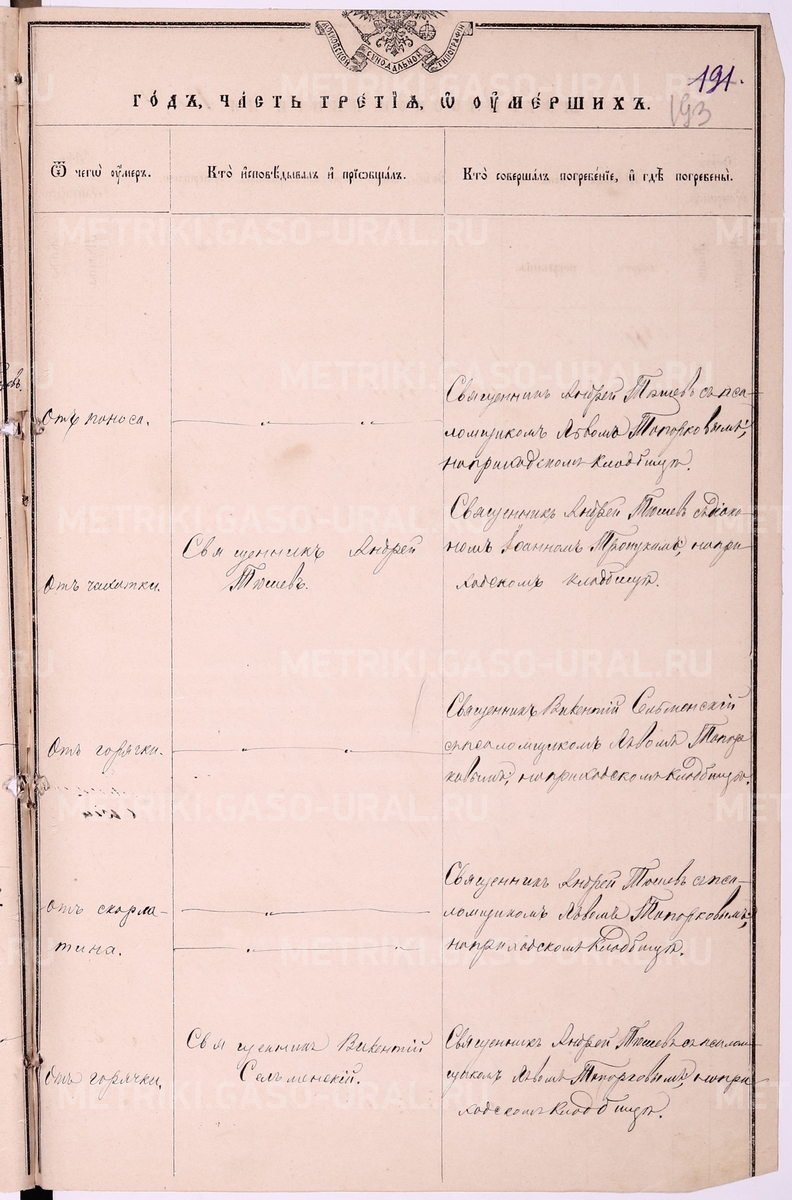 МОСКОВСКОЙ СѴНОДАЛЬНОЙ ТИПОГРАФІИ
191.
193
ГО́ДЪ, ЧА́СТЬ ТРЕ́ТІѦ, Ѽ ОУ҆МЕ́РШИХЪ.
Ѿ чегѡ̀ оу҆́меръ.
Кто̀ и҆сповѣ́дывалъ и҆ прїѡбща́лъ.
Кто̀ соверша́лъ погребе́нїе, и҆ гдѣ̀ погребены̀.
Отъ поноса.
Священникъ Андрей Тюшевъ съ пса-
ломщикомъ Львомъ Топорковымъ,
на приходскомъ кладбищѣ.
Отъ чахотки.
Священникъ Андрей
Тюшевъ.
Священникъ Андрей Тюшевъ съ діако-
номъ Іоанномъ на при-
ходскомъ кладбищѣ.
Отъ горячки.
Священникъ Викентій Сельменскій
съ псаломщикомъ Львомъ Топор-
ковымъ, на приходскомъ кладбищѣ.
отъ скорла-
тина.
Священникъ Андрей Тюшевъ съ пса-
ломщикомъ Львомъ Топорковымъ,
на приходскомъ кладбищѣ.
отъ горячки.
Священникъ Викентій
Сельменскій.
Священникъ Андрей Тюшевъ съ псалом-
щикомъ Львомъ Топорговымъ, на при-
ходскомъ кладбищѣ.
METRIKI.GASO-URAL.RU